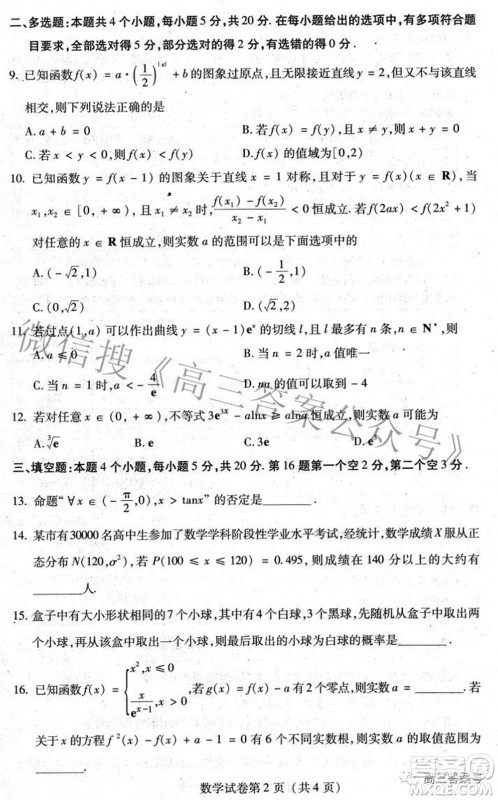 二、多选题:本题共4个小题,每小题5分,共20分.在每小题给出的选项中,有多项符合题
目要求,全部选对得5分,部分选对的得2分,有选错的得0分.
9.已知函数f(x) = a·(1/2)^|x| + b的图象过原点,且无限接近直线y = 2,但又不与该直线
相交,则下列说法正确的是
A. a + b = 0 B. 若f(x) = f(y),且x ≠ y,则x + y = 0
C. 若x < y < 0,则f(x) < f(y) D. f(x)的值域为[0,2)
10. 已知函数y = f(x - 1)的图象关于直线x = 1对称,且对于y = f(x)(x ∈ R),当
x₁,x₂ ∈ [0, + ∞),且x₁ ≠ x₂时,(f(x₁) - f(x₂))/(x₂ - x₁) < 0恒成立.若f(2ax) < f(2x² + 1)
对任意的x ∈ R恒成立,则实数a的范围可以是下面选项中的
A. (-√2,1) B. (-1/2,1)
C. (0,√2) D. (-√2,√2)
11. 若过点(1,a)可以作出曲线y = (x - 1)eˣ的切线l,且l最多有n条,n ∈ N*,则
A. a ≤ 0 B. 当n = 2时,a值唯一
C. 当n = 1时,a < -4/e D. na的值可以取到-4
12. 若对任意的x > 0,不等式3e³ˣ - alnx ≥ alna恒成立,则实数a可能为
A. ∛e B. e C. 3e D. e³
三、填空题:本题4个小题,每小题5分,共20分.第16题第一个空2分,第二个空3分.
13. 命题“∀x ∈ (-π/2,0),x > tanx”的否定是______.
14. 某市有30000名高中生参加了数学学科阶段性学业水平考试,经统计,数学成绩X服从正
态分布N(120,σ²),若P(100 ≤ x ≤ 120) = 0.495,则成绩在140分以上的大约有
______人.
15. 盒子中有大小形状相同的7个小球,其中有4个白球,3个黑球,先随机从盒子中取出两
个小球,再从该盒中取出一个小球,则最后取出的小球为白球的概率是______.
16. 已知函数f(x) = { x²,x ≤ 0; x/eˣ⁻¹,x > 0 },若g(x) = f(x) - a有2个零点,则实数a = ______.若
关于x的方程f²(x) - f(x) + a - 1 = 0有6个不同实数根,则实数a的取值范围为
______.
数学试卷第2页(共4页)
微信搜《高三答案公众号》
高三答案号